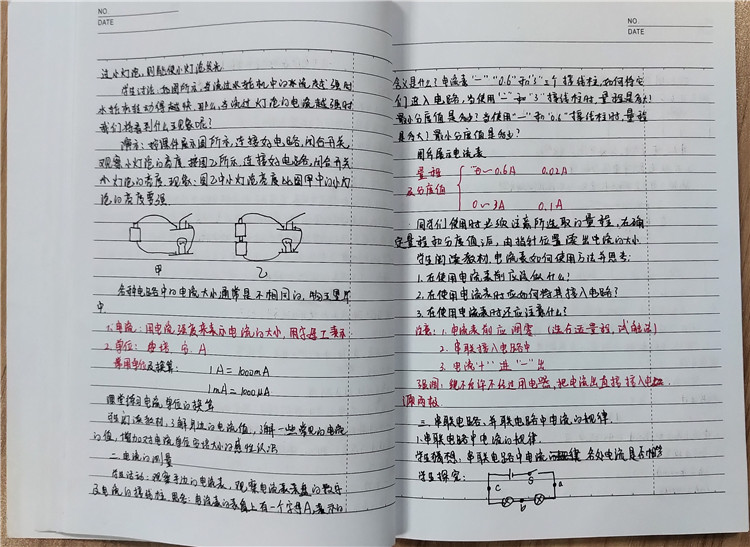 NO.
DATE
过小灯泡,则能使小灯泡发光
学生讨论:如图所示,当流过水轮机中的水流越强时
水轮转动得越快,那么,当流过灯泡的电流越强时
我们将看到什么现象呢?
演示:按课件展示图所示,连接好电路,闭合开关
观察小灯泡的亮度,按图乙所示,连接好电路,闭合开关
小灯泡的亮度.现象:图乙中小灯泡亮度比图甲中的小灯
泡的亮度要强
甲
乙
各种电路中的电流大小通常是不相同的,物理学
中
1.电流:用电流强度来表示电流的大小,用字母I表示
2.单位:安培 安 A
常用单位及换算:
1A=1000mA
1mA=1000μA
课堂练习电流单位的换算
我们阅读教材,了解身边的电流值,了解一些常见的电流
的值,增加对电流单位安培大小的感性认识
二.电流的测量
学生活动:观察手边的电流表,观察电流表表盘的数字
及电流的接线柱.思考:电流表的表盘上有一个字母A,表示的
NO.
DATE
含义是什么?电流表"-""0.6"和"3"三个接线柱,如何将它
们进入电路,当使用"-"和"3"接线柱时,量程是多大?
最小分度值是多少?当使用"-"和"0.6"接线柱时,量程
是多大?最小分度值是多少?
图片展示电流表
量程
及分度值
0~0.6A 0.02A
0~3A 0.1A
同学们使用时必须注意所选取的量程,在确
定量程和分度值后,由指针位置读出电流的大小
学生阅读教材,电流表如何使用方法并思考:
1.在使用电流表前应该做什么?
2.在使用电流表时应如何将其接入电路?
3.在使用电流表时还应注意什么?
注意:1.电流表前应调零 (选合适量程,试触法)
2.串联接入电路中
3.电流"+"进"-"出
强调:绝不允许不经过用电器,把电流表直接接入电
源两极
三.串联电路、并联电路中电流的规律.
1.串联电路中电流的规律.
学生猜想:串联电路中电流 各处电流是否相等
学生探究:
S
C
A
B